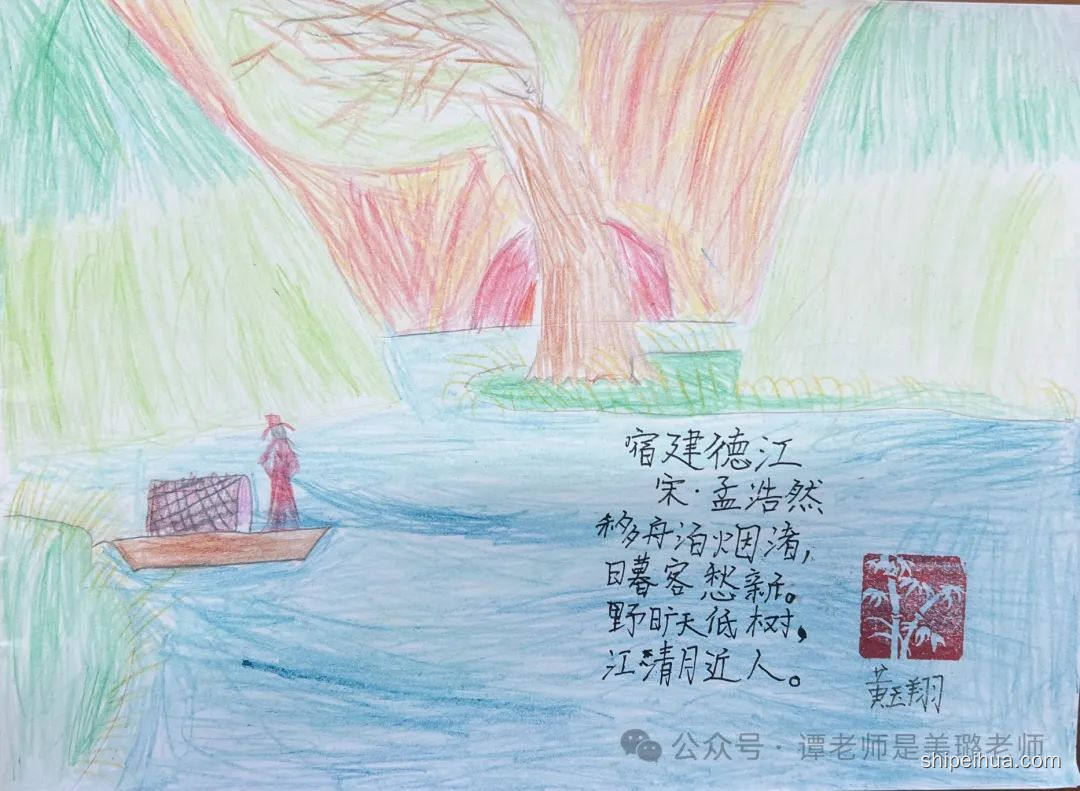 宿建德江
宋·孟浩然
移舟泊烟渚,
日暮客愁新。
野旷天低树,
江清月近人。
黄玉翔
公众号·谭老师是美璐老师
shipeihua.com